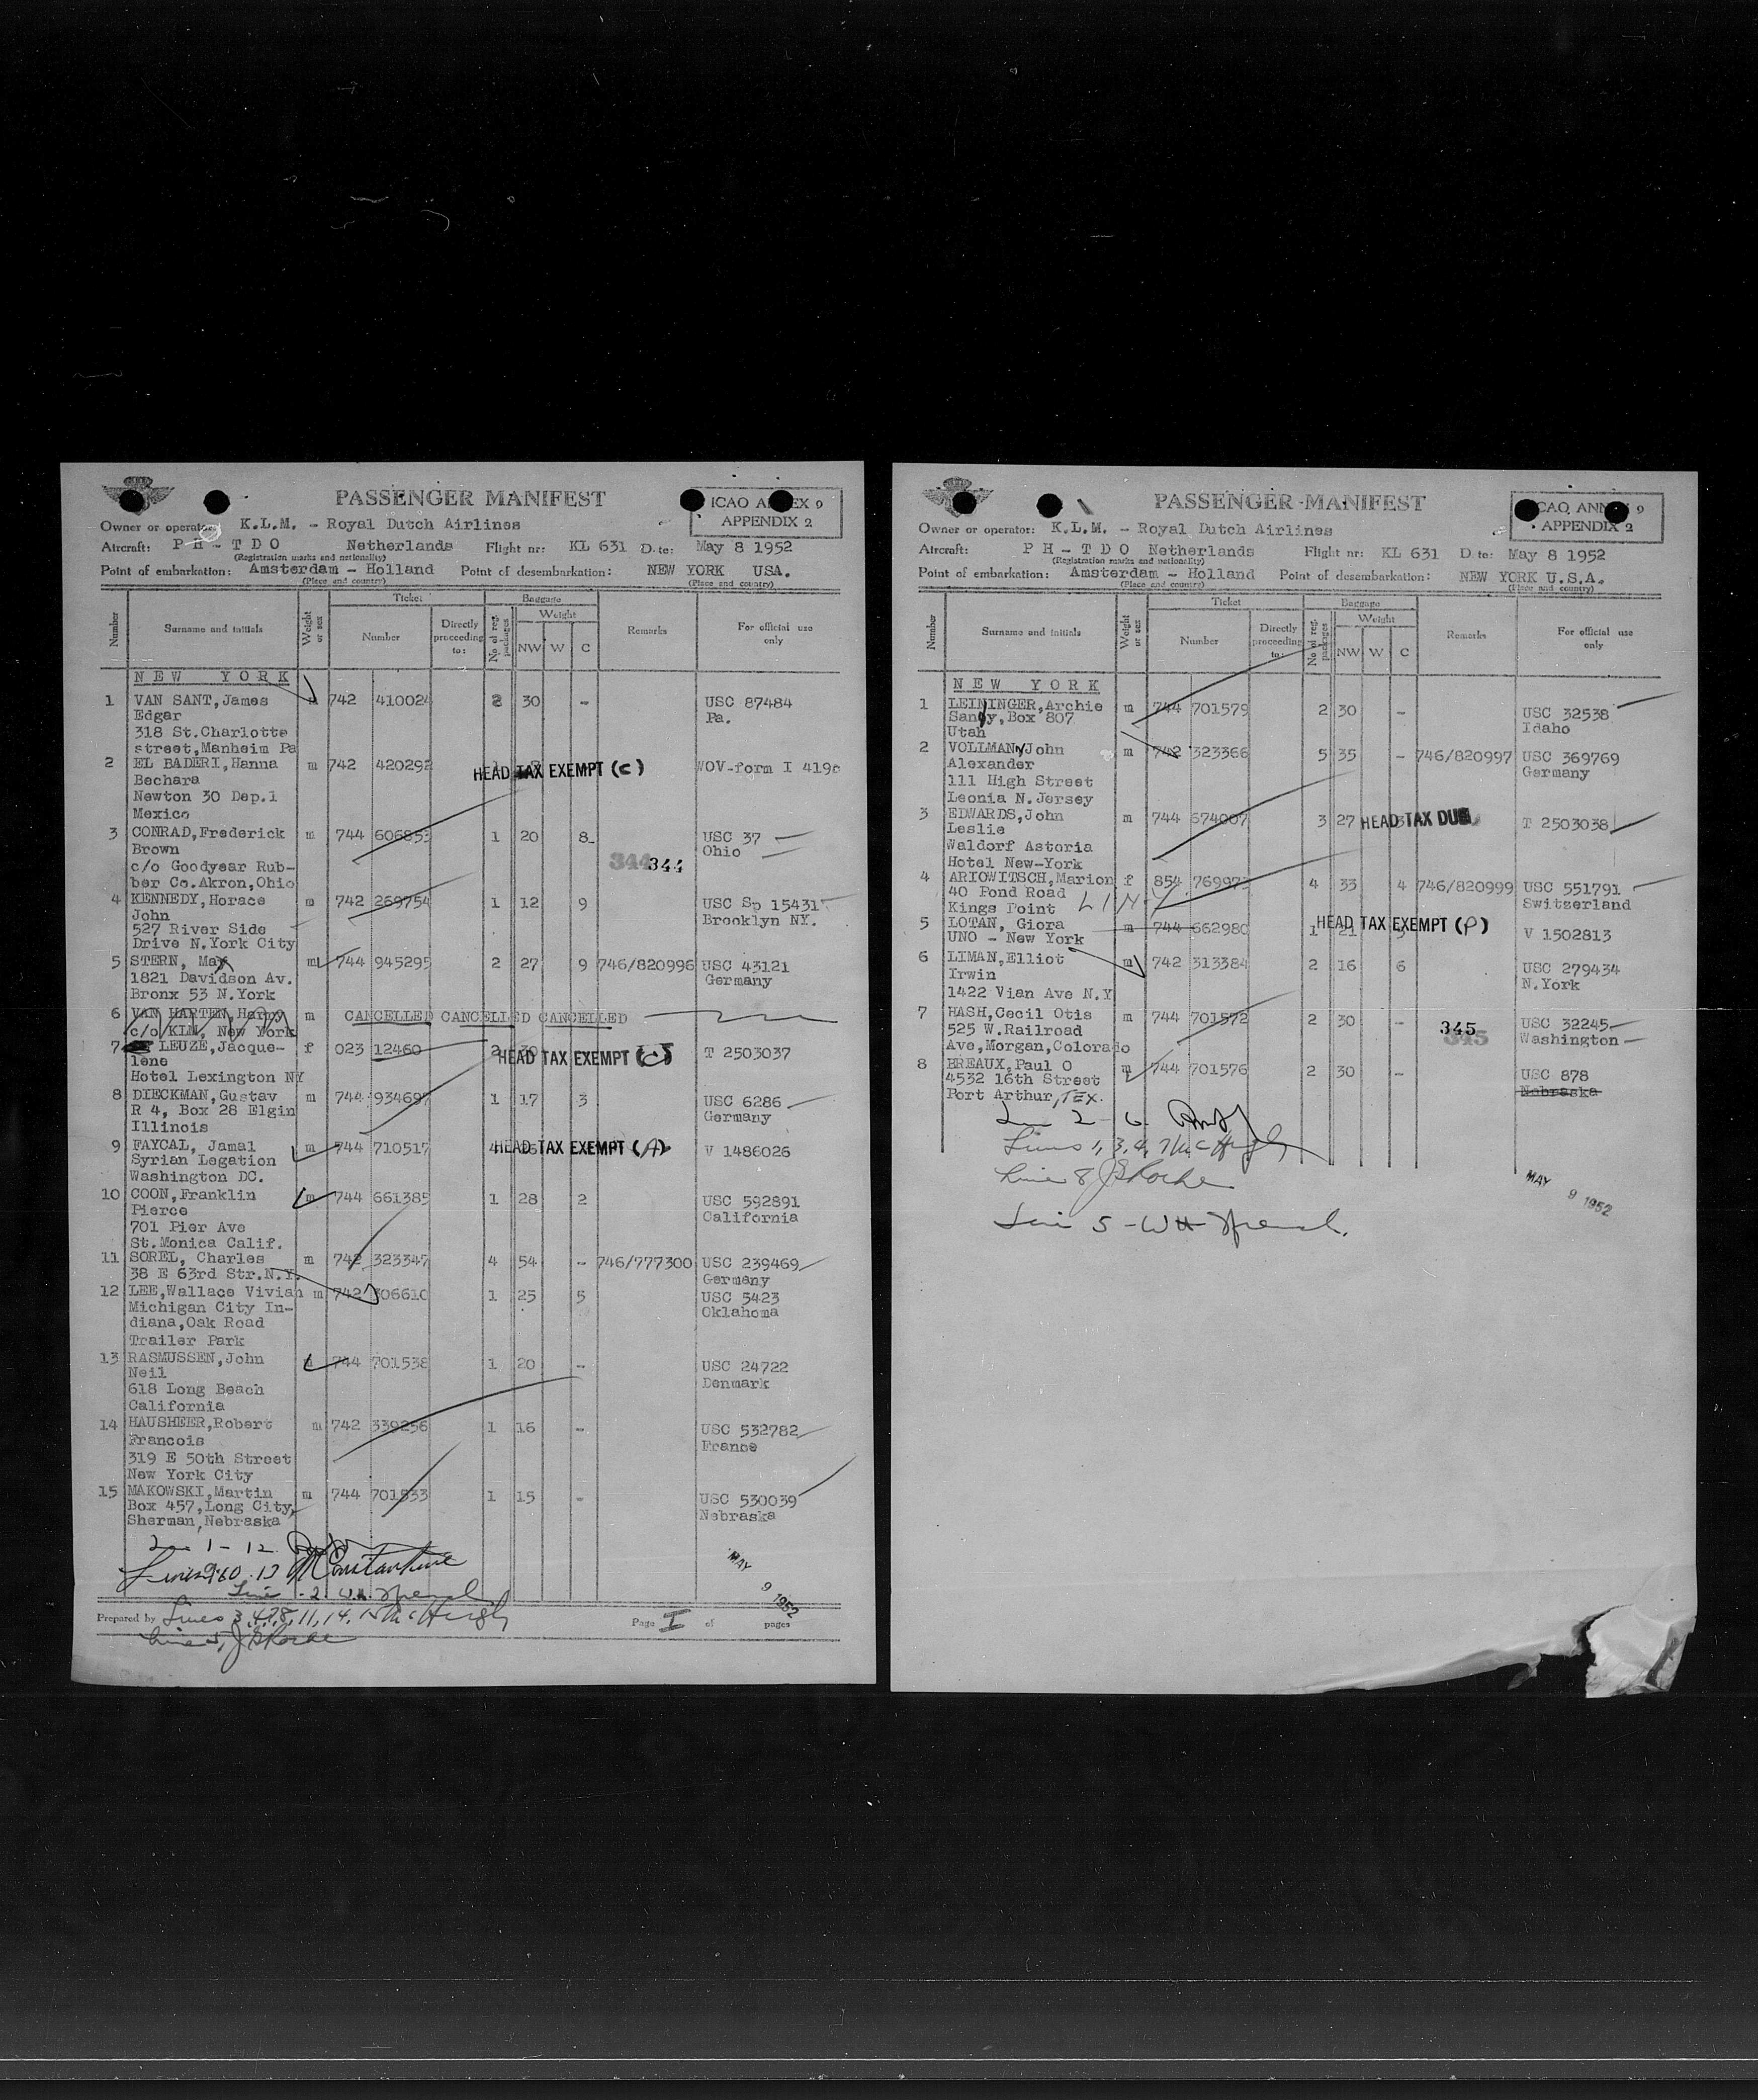 PASSENGER MANIFEST
ICAO ANNEX 9
APPENDIX 2
Owner or operator: K.L.M. - Royal Dutch Airlines
Aircraft: P H - T D O Netherlands Flight nr: KL 631 Date: May 8 1952
(Registration marks and nationality)
Point of embarkation: Amsterdam - Holland Point of desembarkation: NEW YORK USA.
(Place and country) (Place and country)
Number Surname and initials Weight or sex Ticket Number Directly proceeding to: Baggage No of reg. packages Weight NW W C Remarks For official use only
NEW YORK
1 VAN SANT, James m 742 410024 2 30 - USC 87484
Edgar Pa.
318 St.Charlotte
street,Manheim Pa
2 EL BADERI, Hanna m 742 420292 HEAD TAX EXEMPT (C) WOV-form I 419c
Bechara
Newton 30 Dep.1
Mexico
3 CONRAD, Frederick m 744 606853 1 20 8 USC 37
Brown Ohio
c/o Goodyear Rub- 344 344
ber Co.Akron,Ohio
4 KENNEDY, Horace m 742 269754 1 12 9 USC Sp 15431
John Brooklyn NY.
527 River Side
Drive N.York City
5 STERN, Max m 744 945295 2 27 9 746/820996 USC 43121
1821 Davidson Av. Germany
Bronx 53 N.York
6 VAN HARTEN, Harry m CANCELLED CANCELLED CANCELLED
c/o KLM, New York
7 LEUZE, Jacque- f 023 12460 2 HEAD TAX EXEMPT (C) T 2503037
lene
Hotel Lexington NY
8 DIECKMAN, Gustav m 744 934697 1 17 3 USC 6286
R 4, Box 28 Elgin Germany
Illinois
9 FAYCAL, Jamal m 744 710517 4 HEAD TAX EXEMPT (A) V 1486026
Syrian Legation
Washington DC.
10 COON, Franklin m 744 661385 1 28 2 USC 592891
Pierce California
701 Pier Ave
St.Monica Calif.
11 SOREL, Charles m 742 323347 4 54 - 746/777300 USC 239469
38 E 63rd Str.N.Y. Germany
12 LEE, Wallace Vivian m 742 306610 1 25 5 USC 5423
Michigan City In- Oklahoma
diana, Oak Road
Trailer Park
13 RASMUSSEN, John m 744 701538 1 20 - USC 24722
Neil Denmark
618 Long Beach
California
14 HAUSHEER, Robert m 742 339256 1 16 - USC 532782
Francois France
319 E 50th Street
New York City
15 MAKOWSKI, Martin m 744 701533 1 15 - USC 530039
Box 457, Long City, Nebraska
Sherman, Nebraska
1 - 12
MAY 9 1952
Prepared by Lines 3,4,7,8,11,14,15 McHugh Page I of pages
PASSENGER MANIFEST
ICAO ANNEX 9
APPENDIX 2
Owner or operator: K.L.M. - Royal Dutch Airlines
Aircraft: P H - T D O Netherlands Flight nr: KL 631 Date: May 8 1952
(Registration marks and nationality)
Point of embarkation: Amsterdam - Holland Point of desembarkation: NEW YORK U.S.A.
(Place and country) (Place and country)
Number Surname and initials Weight or sex Ticket Number Directly proceeding to: Baggage No of reg. packages Weight NW W C Remarks For official use only
NEW YORK
1 LEININGER, Archie m 744 701579 2 30 - USC 32538
Sandy, Box 807 Idaho
Utah
2 VOLLMAN, John m 742 323366 5 35 - 746/820997 USC 369769
Alexander Germany
111 High Street
Leonia N.Jersey
3 EDWARDS, John m 744 674007 3 27 HEAD TAX DUE T 2503038
Leslie
Waldorf Astoria
Hotel New-York
4 ARIOWITSCH, Marion f 854 769973 4 33 4 746/820999 USC 551791
40 Pond Road Switzerland
Kings Point L I N.Y.
5 LOTAN, Giora m 744 662980 1 21 HEAD TAX EXEMPT (P) V 1502813
UNO - New York
6 LIMAN, Elliot m 742 313384 2 16 6 USC 279434
Irwin N.York
1422 Vian Ave N.Y
7 HASH, Cecil Otis m 744 701572 2 30 - USC 32245
525 W.Railroad 345 345 Washington
Ave, Morgan, Colorado
8 BREAUX, Paul O m 744 701576 2 30 - USC 878
4532 16th Street Nebraska
Port Arthur, TEX.
2 - 6
Lines 1, 3, 4, 7 McHugh
Line 8
Line 5 - WH
MAY 9 1952